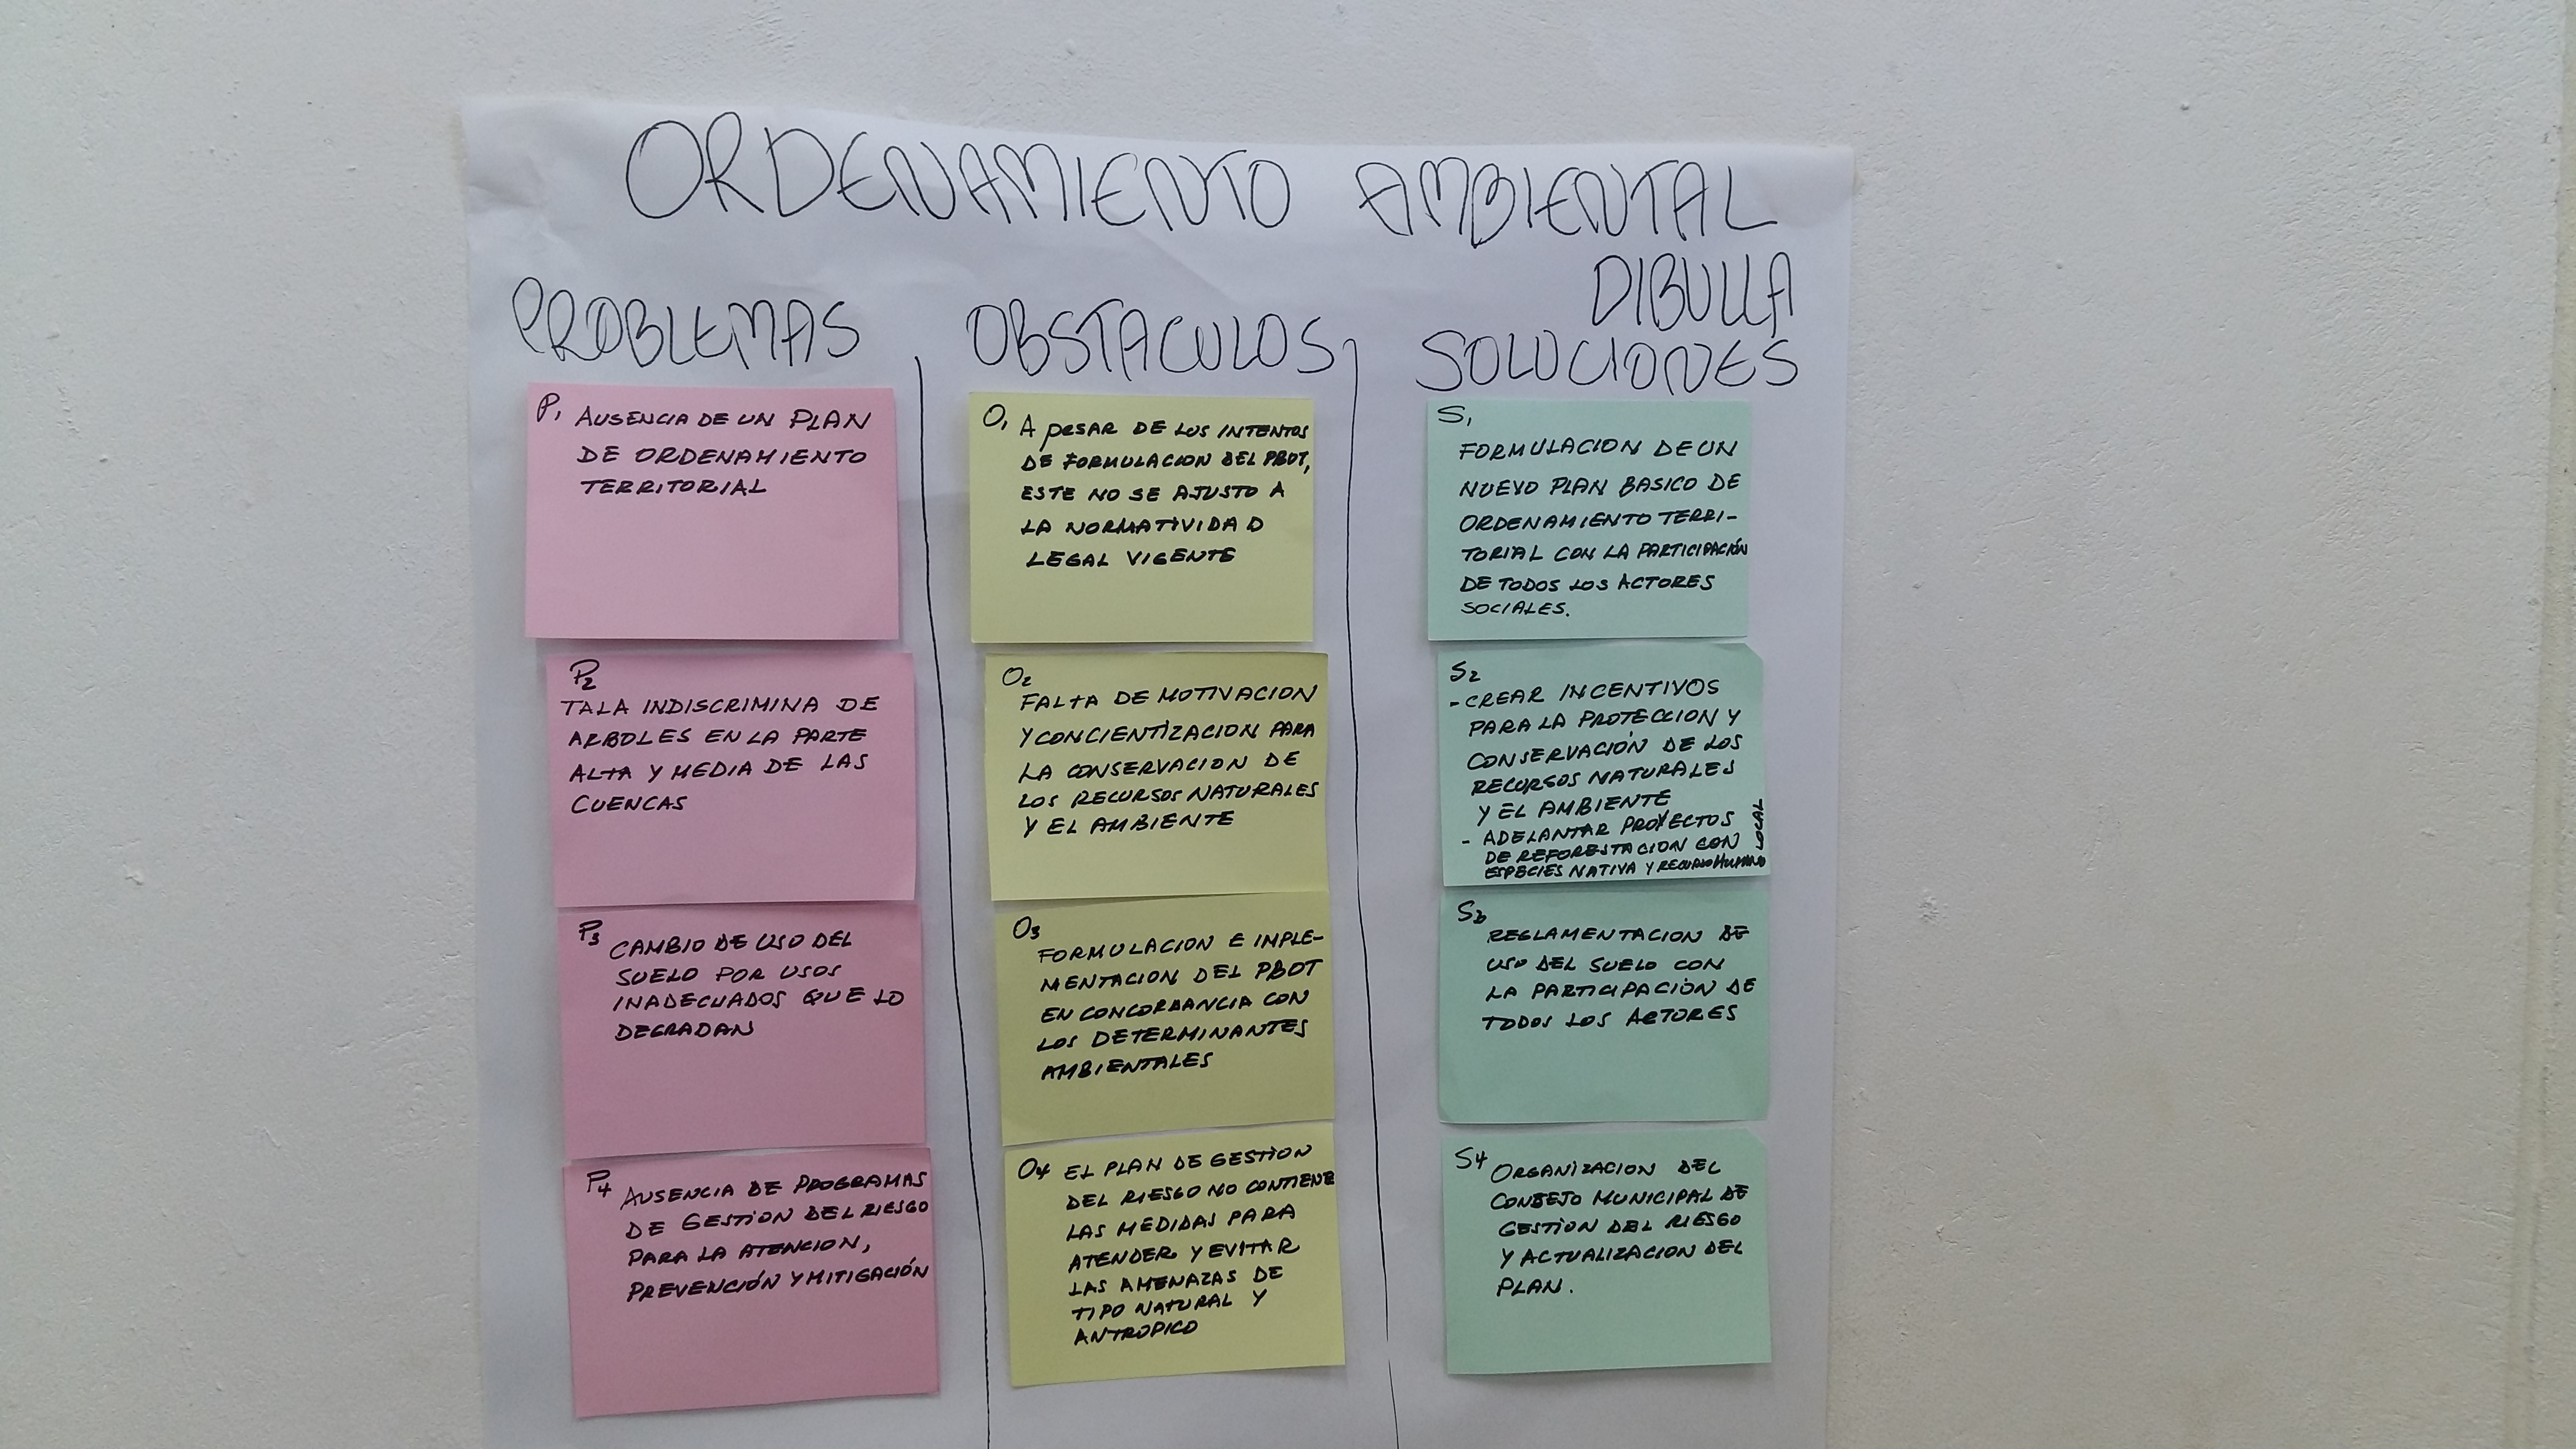 ORDENAMIENTO AMBIENTAL
DIBULLA
PROBLEMAS
P1 AUSENCIA DE UN PLAN
DE ORDENAMIENTO
TERRITORIAL
P2
TALA INDISCRIMINA DE
ARBOLES EN LA PARTE
ALTA Y MEDIA DE LAS
CUENCAS
P3 CAMBIO DE USO DEL
SUELO POR USOS
INADECUADOS QUE LO
DEGRADAN
P4 AUSENCIA DE PROGRAMAS
DE GESTION DEL RIESGO
PARA LA ATENCION,
PREVENCIÓN Y MITIGACIÓN
OBSTACULOS
O1 A PESAR DE LOS INTENTOS
DE FORMULACION DEL PBOT,
ESTE NO SE AJUSTO A
LA NORMATIVIDAD
LEGAL VIGENTE
O2
FALTA DE MOTIVACION
Y CONCIENTIZACION PARA
LA CONSERVACION DE
LOS RECURSOS NATURALES
Y EL AMBIENTE
O3
FORMULACION E IMPLE-
MENTACION DEL PBOT
EN CONCORDANCIA CON
LOS DETERMINANTES
AMBIENTALES
O4 EL PLAN DE GESTION
DEL RIESGO NO CONTIENE
LAS MEDIDAS PARA
ATENDER Y EVITAR
LAS AMENAZAS DE
TIPO NATURAL Y
ANTROPICO
SOLUCIONES
S1
FORMULACION DE UN
NUEVO PLAN BASICO DE
ORDENAMIENTO TERRI-
TORIAL CON LA PARTICIPACIÓN
DE TODOS LOS ACTORES
SOCIALES.
S2
- CREAR INCENTIVOS
PARA LA PROTECCION Y
CONSERVACIÓN DE LOS
RECURSOS NATURALES
Y EL AMBIENTE
- ADELANTAR PROYECTOS
DE REFORESTACION CON
ESPECIES NATIVA Y RECURSO HUMANO
LOCAL
S3
REGLAMENTACION DE
USO DEL SUELO CON
LA PARTICIPACIÓN DE
TODOS LOS ACTORES
S4 ORGANIZACION DEL
CONSEJO MUNICIPAL DE
GESTION DEL RIESGO
Y ACTUALIZACION DEL
PLAN.